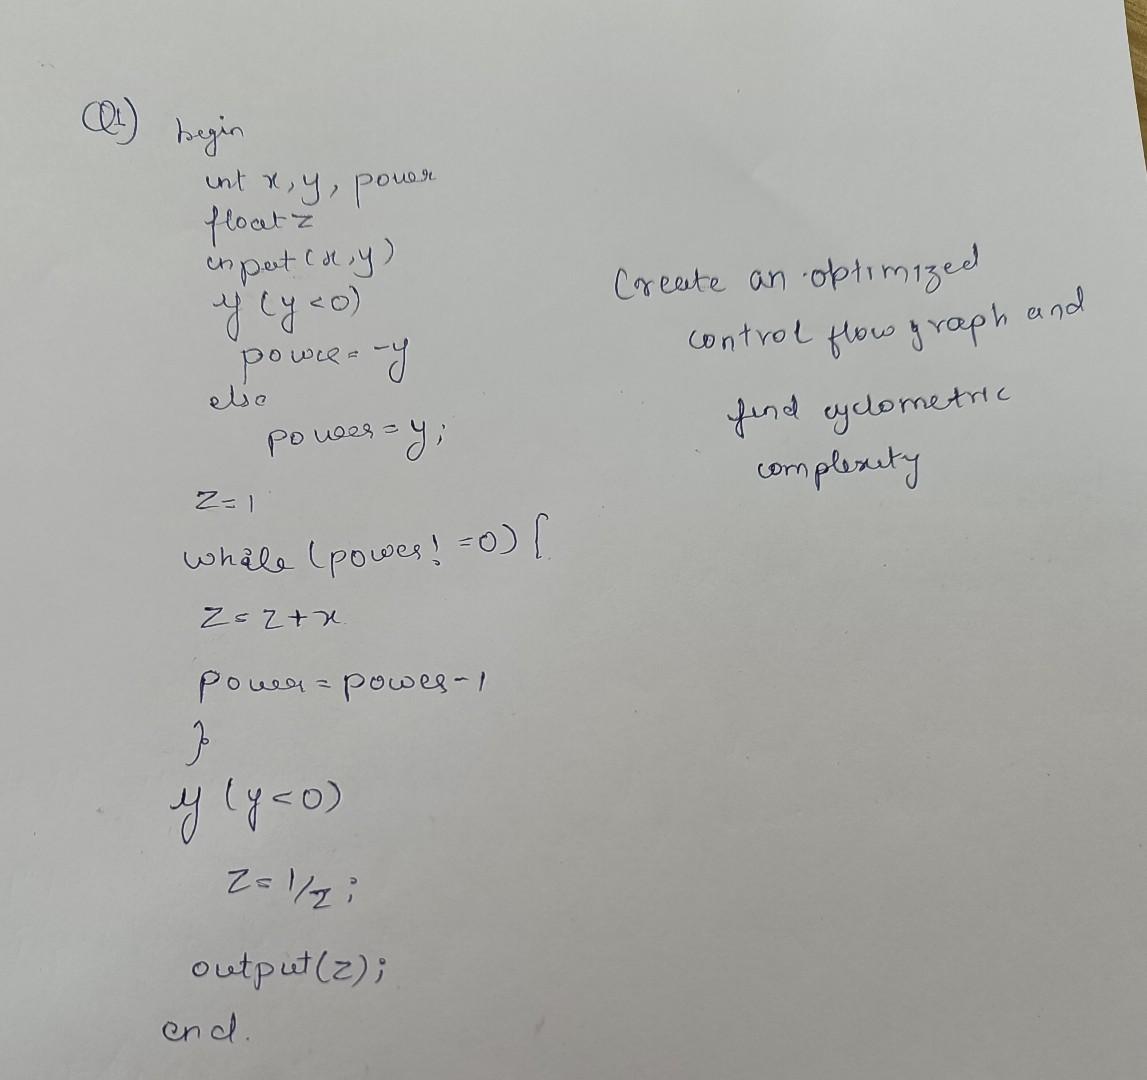 Q1) begin
int x, y, power
float z
input (x, y)
if (y < 0)
power = -y
else
power = y;
z = 1
while (power! = 0) {
z = z + x
power = power - 1
}
if (y < 0)
z = 1/z;
output(z);
end.
Create an optimized
control flow graph and
find cyclometric
complexity